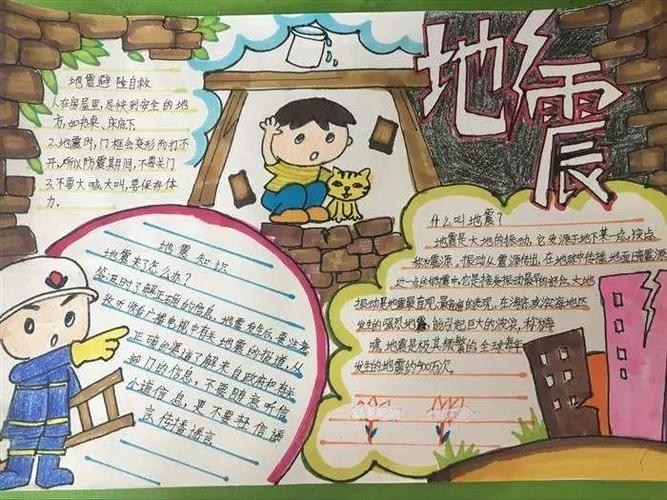 地震
地震避险自救
人在房屋里,尽快到安全的地
方,如书桌、床底下
2.地震时,门框会变形而打不
开,所以防震其间,不要关门
3.不要大喊大叫,要保存体
力.
什么叫地震?
地震是大地的振动,它发源于地下某一点,该点
称为震源。振动从震源传出,在地球中传播.地面上离震源
近一点的 它是接受振动最早的部位.大地
振动是地震最直观、最普遍的表现。在海底或滨海地区
发生的强烈地震,能引起巨大的波浪,称海
啸,地震是极其频繁的全球每年
发生的地震约500万次。
地震知识
地震来了怎么办?
等逐时了解正确的信息,地震发生后,要注意
收听收看广播电视中有关地震的报道,从
正确的渠道了解来自政府和有关
部门的信息,不要随意听信
小道信息,更不要轻信谣
言传播谣言